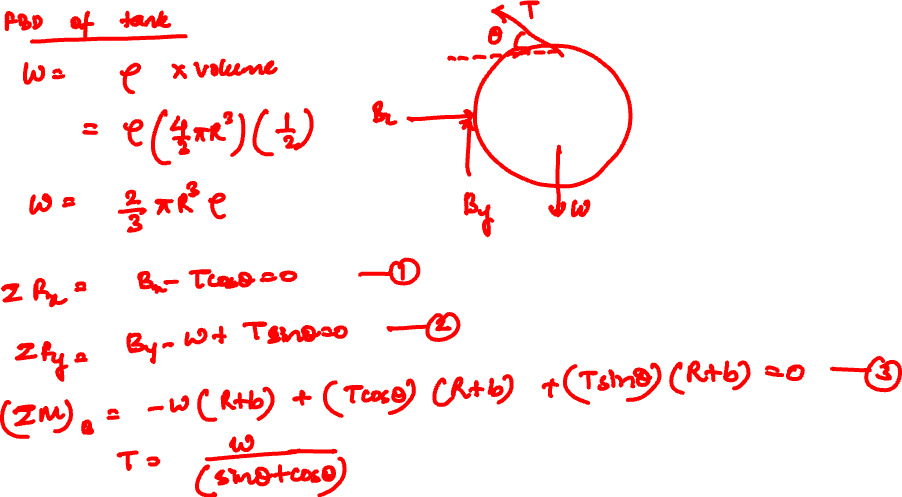 FBD of tank
T
θ
W = ρ x volume
Bx
= ρ(4/3 πR³)(1/2)
By
W
W = 2/3 πR³ ρ
Σ Fx = Bx - Tcosθ = 0 — ①
Σ Fy = By - W + Tsinθ = 0 — ②
(ΣM)B = -W(R+b) + (Tcosθ)(R+b) + (Tsinθ)(R+b) = 0 — ③
T = W/(sinθ+cosθ)